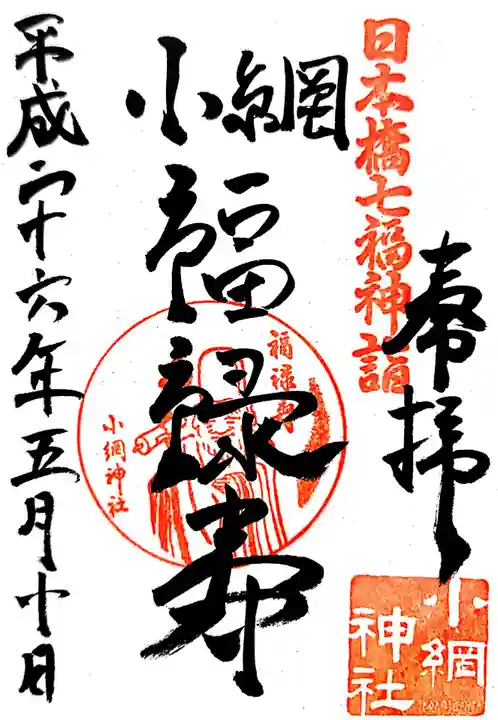 日本橋七福神詣
奉拝
小網
福禄寿
福禄寿
小網神社
平成二十六年五月十日
小網
神社